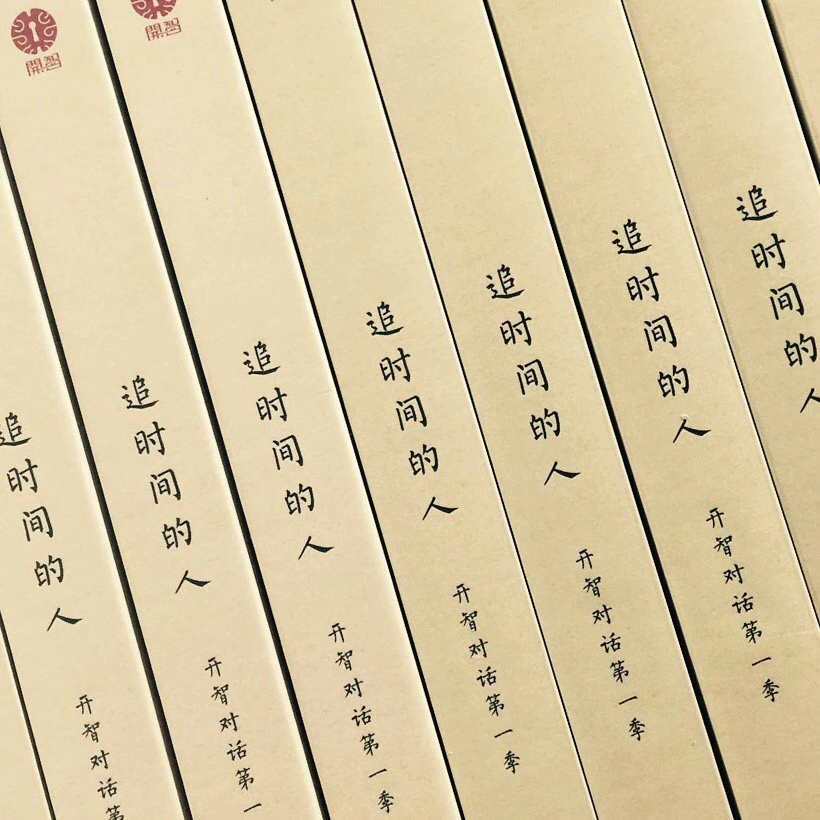 追时间的人
开智对话第
開智
追时间的人
开智对话第一
開智
追时间的人
开智对话第一季
追时间的人
开智对话第一季
追时间的人
开智对话第一季
追时间的人
开智对话第一季
追时间的人